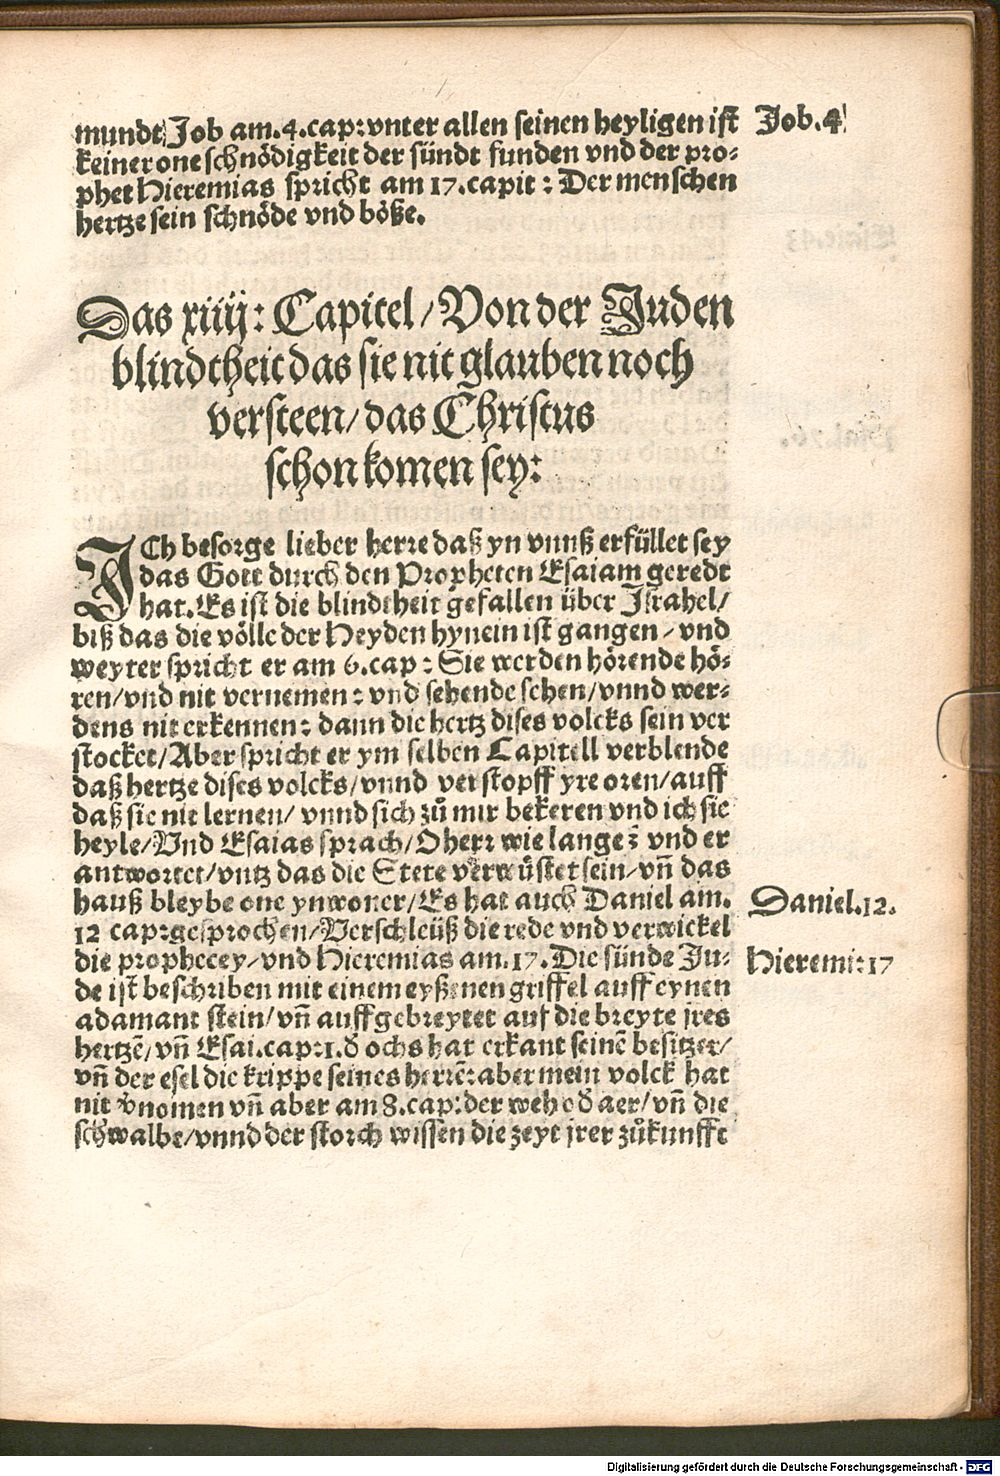 mundt Job am.4.cap:vnter allen seinen heyligen ist
Job.4
keiner one schnödigkeit der sündt funden vnd der pro-
phet Hieremias spricht am 17.capit: Der menschen
hertze sein schnöde vnd böße.
Das xiiij: Capitel/Von der Juden
blindtheit das sie nit glauben noch
versteen/das Christus
schon komen sey:
ICh besorge lieber herre daß yn vnnß erfüllet sey
das Gott durch den Propheten Esaiam geredt
hat.Es ist die blindtheit gefallen über Israhel/
biß das die völle der Heyden hynein ist gangen/vnd
weyter spricht er am 6.cap: Sie werden hörende hö-
ren/vnd nit vernemen: vnd sehende sehen/vnnd wer-
dens nit erkennen: dann die hertz dises volcks sein ver
stocket/Aber spricht er ym selben Capitell verblende
daß hertze dises volcks/vnnd verstopff yre oren/auff
daß sie nit lernen/vnnd sich zů mir bekeren vnd ich sie
heyle/Vnd Esaias sprach/O herr wie lange: vnd er
antwortet/vntz das die Stete verwüstet sein/vñ das
hauß bleybe one ynwoner/Es hat auch Daniel am.
Daniel.12.
12 cap:gesprochen/Verschleüß die rede vnd verwickel
die prophecey/vnd Hieremias am.17.Die sünde Ju-
Hieremi:17
de ist beschriben mit einem eyßenen griffel auff eynen
adamant stein/vñ auffgebreytet auf die breyte jres
hertzē/vñ Esai.cap:1.d̕ ochs hat erkant seinē besitzer/
vñ der esel die krippe seines herrē:aber mein volck hat
nit v̕nomen vñ aber am 8.cap:der weh o d̕ aer/vñ die
schwalbe/vnnd der storch wissen die zeyt jrer zůkunfft
Digitalisierung gefördert durch die Deutsche Forschungsgemeinschaft - DFG